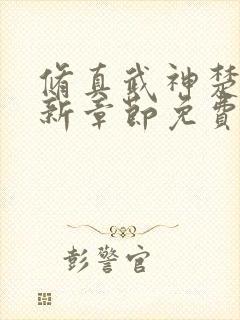 脩真武神楚
新章節免費
彭警官